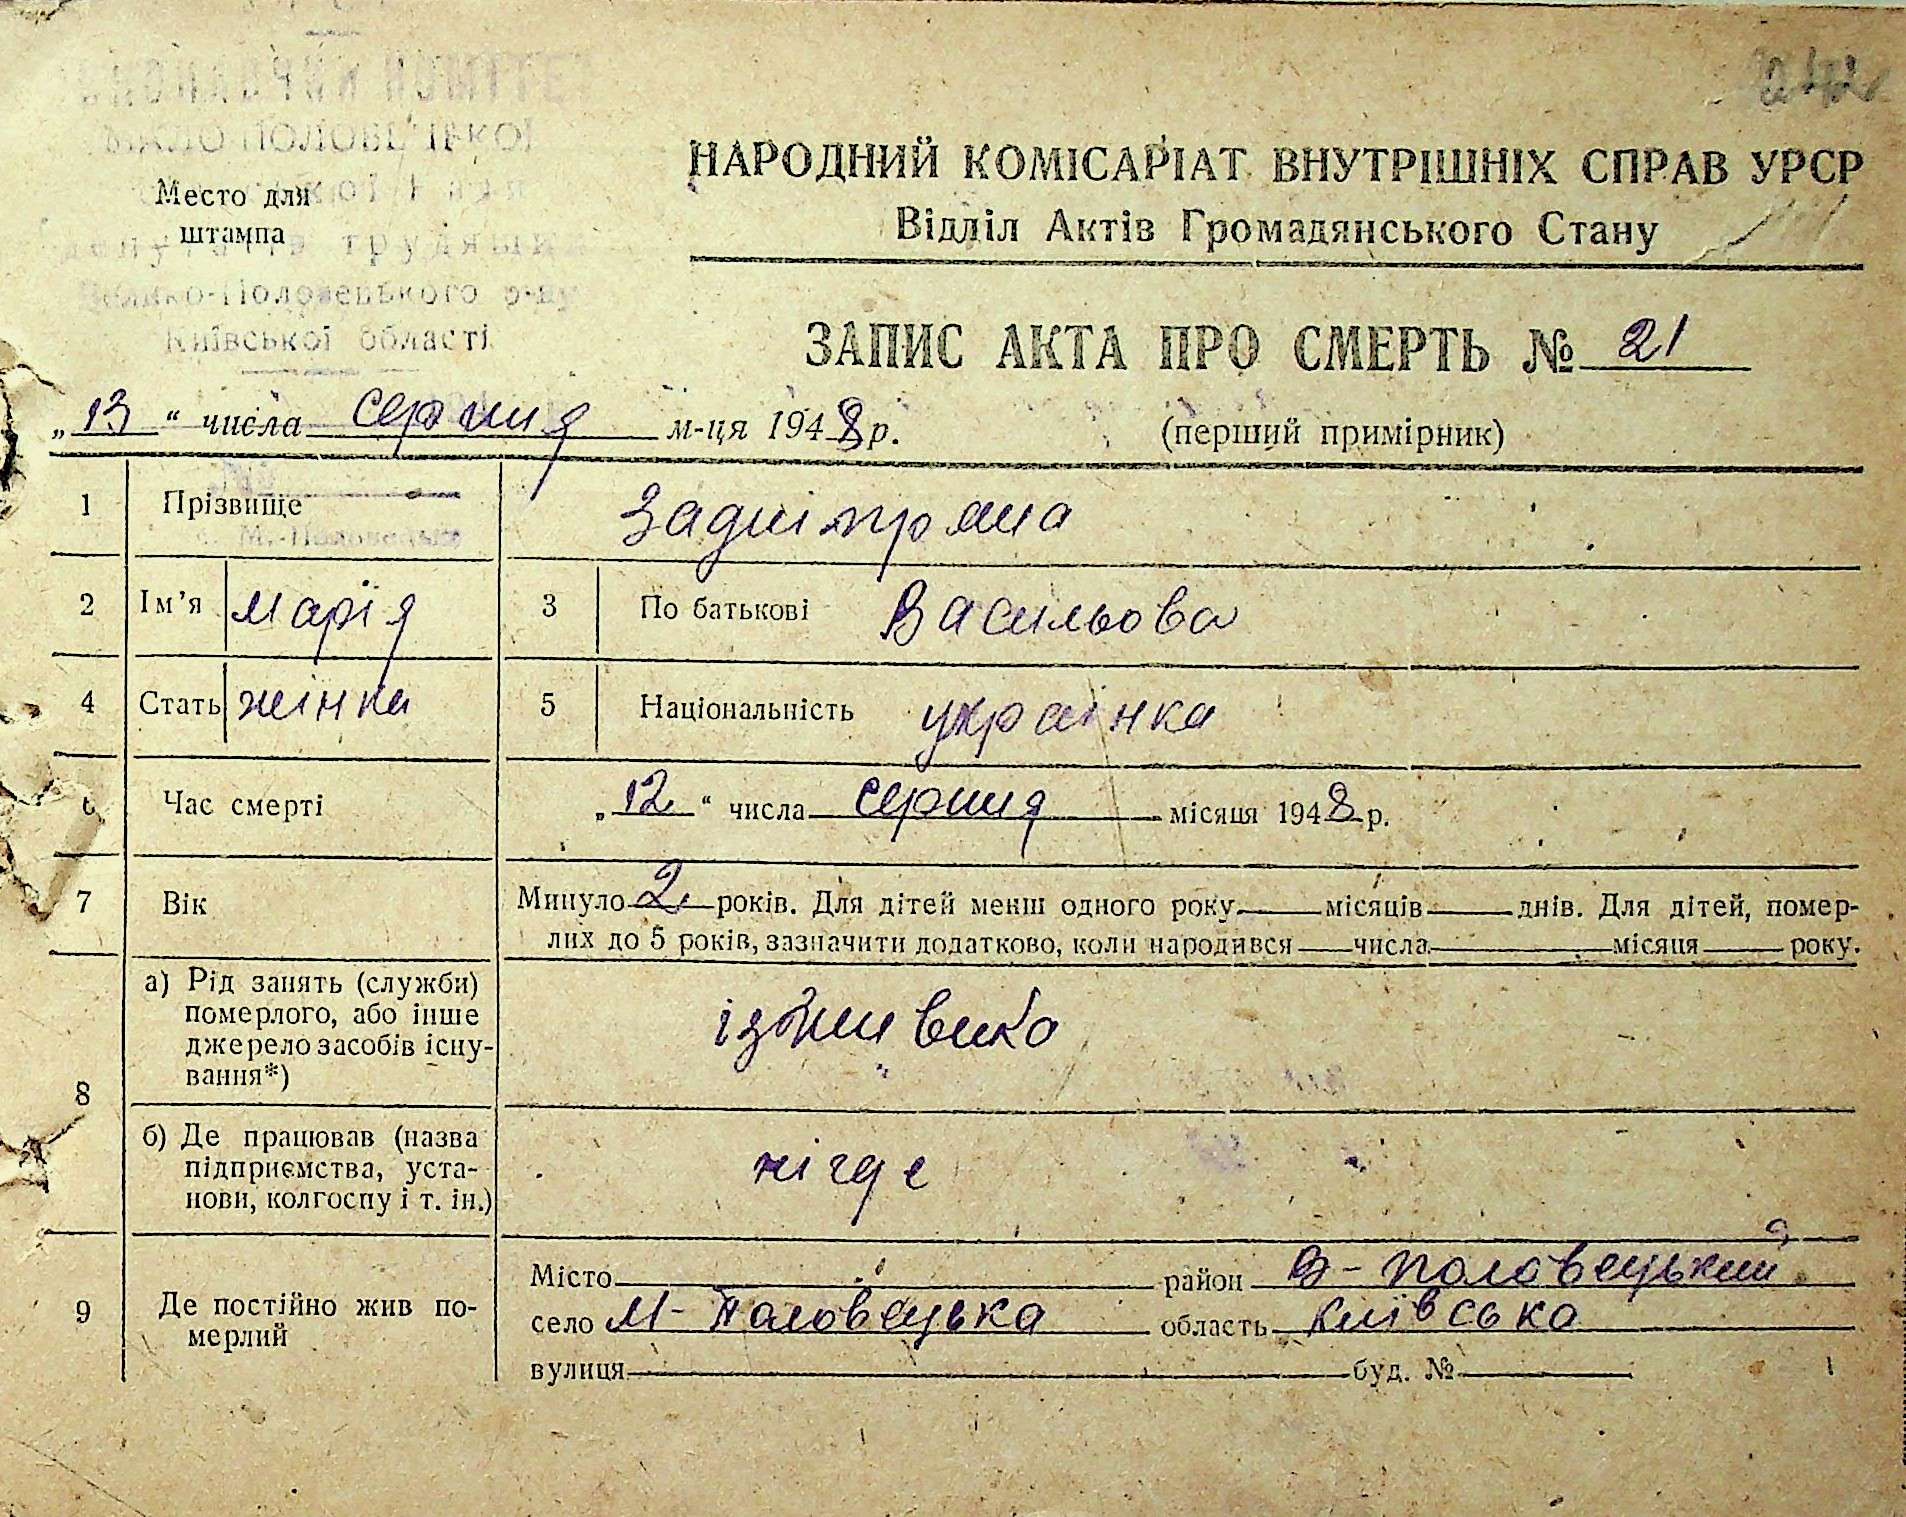 ВИКОНАВЧИЙ КОМІТЕТ
МАЛО ПОЛОВЕЦЬКОЇ
депутатів трудящих
Велико-Половецького р-ну
Київської області
Место для
штампа
НАРОДНИЙ КОМІСАРІАТ ВНУТРІШНІХ СПРАВ УРСР
Відділ Актів Громадянського Стану
ЗАПИС АКТА ПРО СМЕРТЬ № 21
„13“ числа серпня м-ця 1948 р. (перший примірник)
1 Прізвище Задніпряна
2 Ім’я Марія 3 По батькові Васильова
4 Стать жінка 5 Національність українка
6 Час смерті „12“ числа серпня місяця 1948 р.
7 Вік Минуло 2 років. Для дітей менш одного року місяців днів. Для дітей, помер-
лих до 5 років, зазначити додатково, коли народився числа місяця року.
8 а) Рід занять (служби)
померлого, або інше
джерело засобів існу-
вання*)
б) Де працював (назва
підприємства, уста-
нови, колгоспу і т. ін.)
нігде
9 Де постійно жив по-
мерлий
Місто район В-Половецький
село М-Половецька область Київська
вулиця буд. №